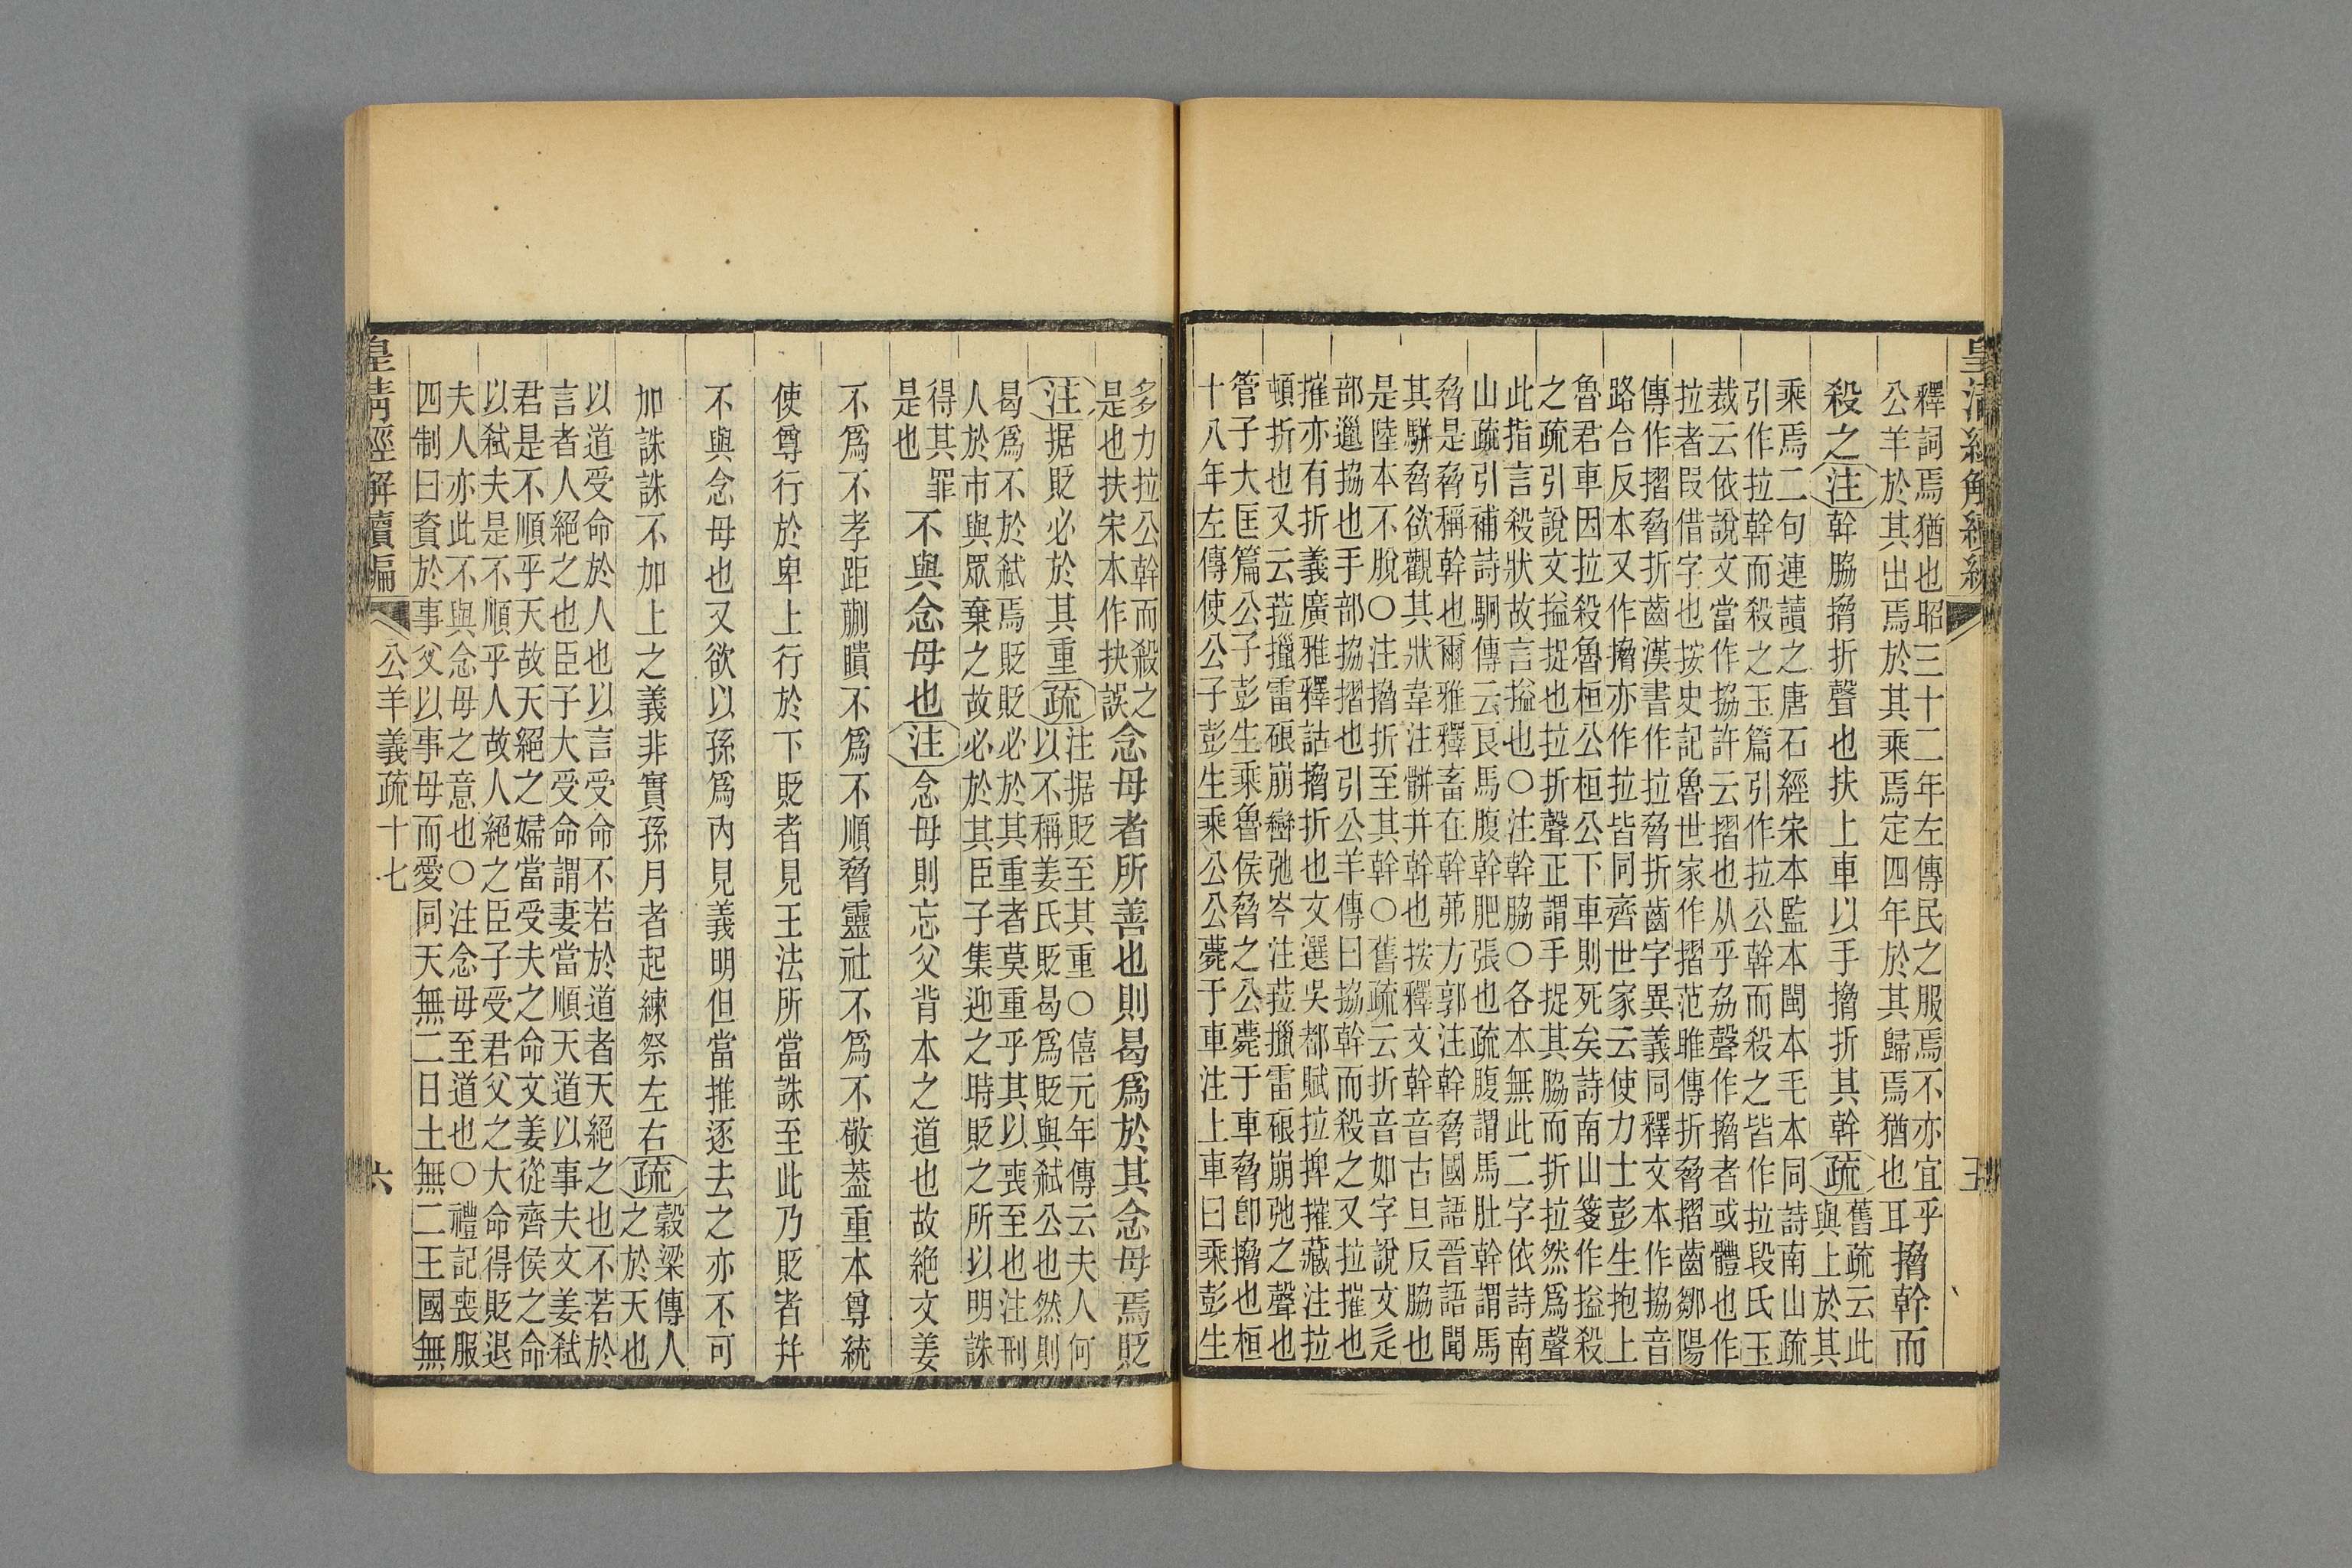 皇清經解續編
五
釋詞焉猶也昭三十二年左傳民之服焉不亦宜乎
公羊於其出焉於其乘焉定四年於其歸焉猶也耳
搚幹而
殺之注幹脇搚折聲也扶上車以手搚折其幹疏
舊疏云此
與上於其
乘焉二句連讀之唐石經宋本監本閩本毛本同詩南山疏
引作拉幹而殺之玉篇引作拉公幹而殺之皆作拉段氏玉
裁云依說文當作協許云摺也从乎劦聲作搚者或體也作
拉者叚借字也按史記魯世家作摺范雎傳折脅摺齒鄒陽
傳作摺脅折齒漢書作拉脅折齒字異義同釋文本作協音
路合反本又作搚亦作拉皆同齊世家云使力士彭生抱上
魯君車因拉殺魯桓公桓公下車則死矣詩南山箋作搤殺
之疏引說文搤捉也拉折聲正謂手捉其脇而折拉然爲聲
此指言殺狀故言搤也○注幹脇○各本無此二字依詩南
山疏引補詩駉傳云良馬腹幹肥張也疏腹謂馬肚幹謂馬
脅是脅稱幹也爾雅釋畜在幹茀方郭注幹脅國語晉語聞
其駢脅欲觀其狀韋注骿并幹也按釋文幹音古旦反脇也
是陸本不脫○注搚折至其幹○舊疏云折音如字說文辵
部邋協也手部協摺也引公羊傳曰協幹而殺之又拉摧也
摧亦有折義廣雅釋詁搚折也文選吳都賦拉捭摧藏注拉
頓折也又云菈擸雷硠崩巒弛岑注菈擸雷硠崩弛之聲也
管子大匡篇公子彭生乘魯侯脅之公薨于車脅卽搚也桓
十八年左傳使公子彭生乘公公薨于車注上車曰乘彭生
多力拉公幹而殺之
是也扶宋本作抉誤
念母者所善也則曷爲於其念母焉貶
注据貶必於其重疏
注据貶至其重○僖元年傳云夫人何
以不稱姜氏貶曷爲貶與弒公也然則
曷爲不於弒焉貶貶必於其重者莫重乎其以喪至也注刑
人於市與眾棄之故必於其臣子集迎之時貶之所以明誅
得其罪
是也
不與念母也注念母則忘父背本之道也故絶文姜
不爲不孝距蒯瞶不爲不順脅靈社不爲不敬葢重本尊統
使尊行於卑上行於下貶者見王法所當誅至此乃貶者幷
不與念母也又欲以孫爲內見義明但當推逐去之亦不可
加誅誅不加上之義非實孫月者起練祭左右疏
穀梁傳人
之於天也
以道受命於人也以言受命不若於道者天絕之也不若於
言者人絕之也臣子大受命謂妻當順天道以事夫文姜弒
君是不順乎天故天絕之婦當受夫之命文姜從齊侯之命
以弒夫是不順乎人故人絕之臣子受君父之大命得貶退
夫人亦此不與念母之意也○注念母至道也○禮記喪服
四制曰資於事父以事母而愛同天無二日土無二王國無
皇清經解續編
公羊義疏十七
六